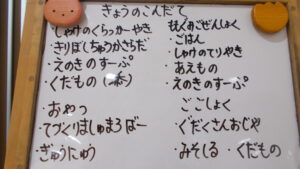 きょうのこんだて
・しゃけのくらっかーやき
・きりぼしちゅうかさらだ
・えのきのすーぷ
・くだもの
・おやつ
・てづくりましゅまろばー
・ぎゅうにゅう
・ごはん
・しゃけのてりやき
・あえもの
・えのきのすーぷ
ごごしょく
・ぐだくさんおじや
・みそしる・くだもの